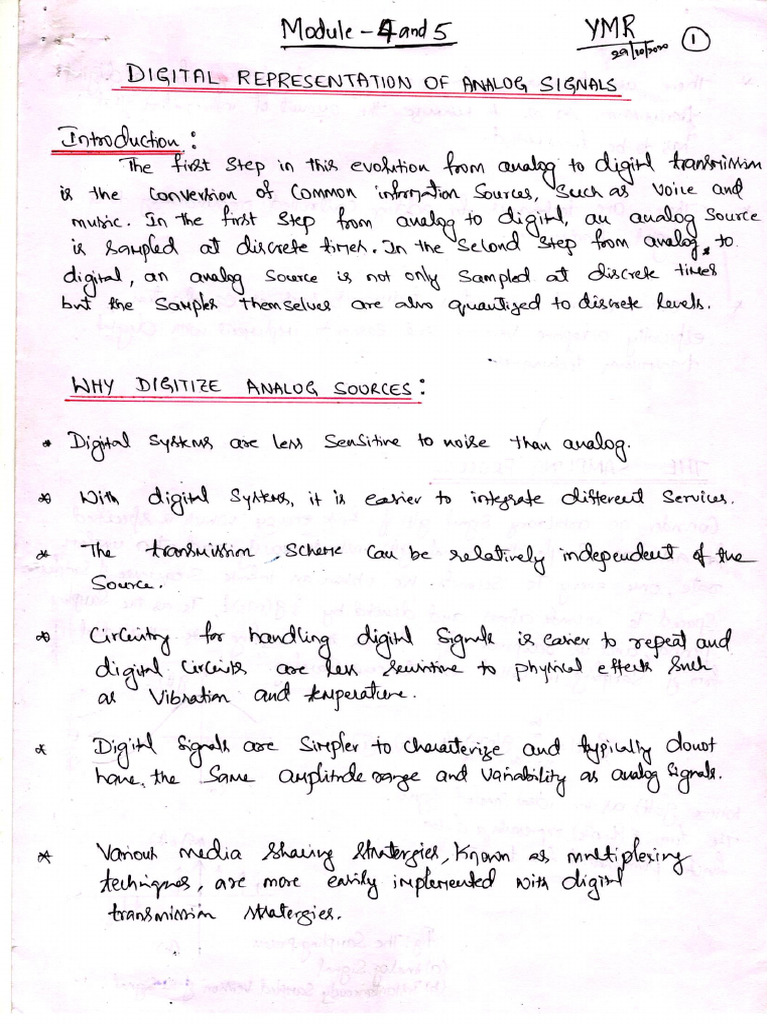 Module - 4 and 5
YMR
29/10/2020
1
DIGITAL REPRESENTATION OF ANALOG SIGNALS
Introduction :
The first step in this evolution from analog to digital transmission
is the conversion of common information sources, such as voice and
music. In the first step from analog to digital, an analog source
is sampled at discrete times. In the second step from analog to
digital, an analog source is not only sampled at discrete times
but the samples themselves are also quantized to discrete levels.
WHY DIGITIZE ANALOG SOURCES :
* Digital systems are less sensitive to noise than analog.
* With digital systems, it is easier to integrate different services.
* The transmission scheme can be relatively independent of the
source.
* Circuitry for handling digital signals is easier to repeat and
digital circuits are less sensitive to physical effects such
as vibration and temperature.
* Digital signals are simpler to characterize and typically donot
have the same amplitude range and variability as analog signals.
* Various media sharing stratergies, known as multiplexing
techniques, are more easily implemented with digital
transmission stratergies.